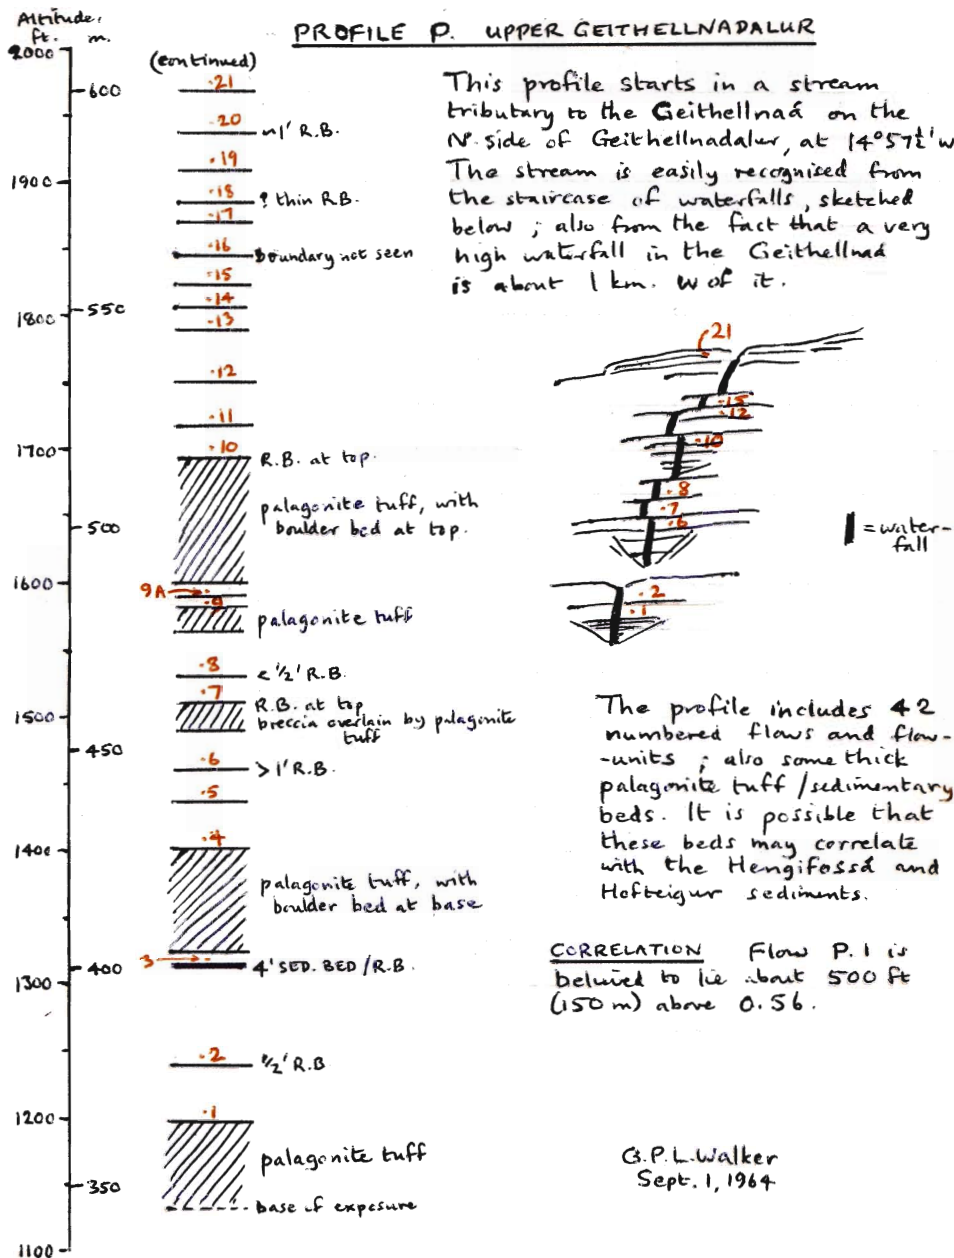 PROFILE P. UPPER GEITHELLNADALUR
Altitude.
ft. m.
2000
600
1900
1800
550
1700
500
1600
1500
450
1400
1300
400
1200
350
1100
(continued)
·21
·20
~1' R.B.
·19
·18
? thin R.B.
·17
·16
boundary not seen
·15
·14
·13
·12
·11
·10
R.B. at top.
palagonite tuff, with
boulder bed at top.
9A
·9
palagonite tuff
·8
< 1/2' R.B.
·7
R.B. at top
breccia overlain by palagonite
tuff
·6
> 1' R.B.
·5
·4
palagonite tuff, with
boulder bed at base
3
4' SED. BED / R.B.
·2
1/2' R.B
·1
palagonite tuff
base of exposure
This profile starts in a stream
tributary to the Geithellná on the
N. side of Geithellnadalur, at 14°57½'W
The stream is easily recognised from
the staircase of waterfalls, sketched
below ; also from the fact that a very
high waterfall in the Geithellná
is about 1 km. W of it.
21
·15
·12
·10
·8
·7
·6
·2
·1
= water-
fall
The profile includes 42
numbered flows and flow-
-units ; also some thick
palagonite tuff / sedimentary
beds. It is possible that
these beds may correlate
with the Hengifossá and
Hofteigur sediments.
CORRELATION Flow P.1 is
believed to lie about 500 ft
(150 m) above O.56.
G.P.L. Walker
Sept. 1, 1964